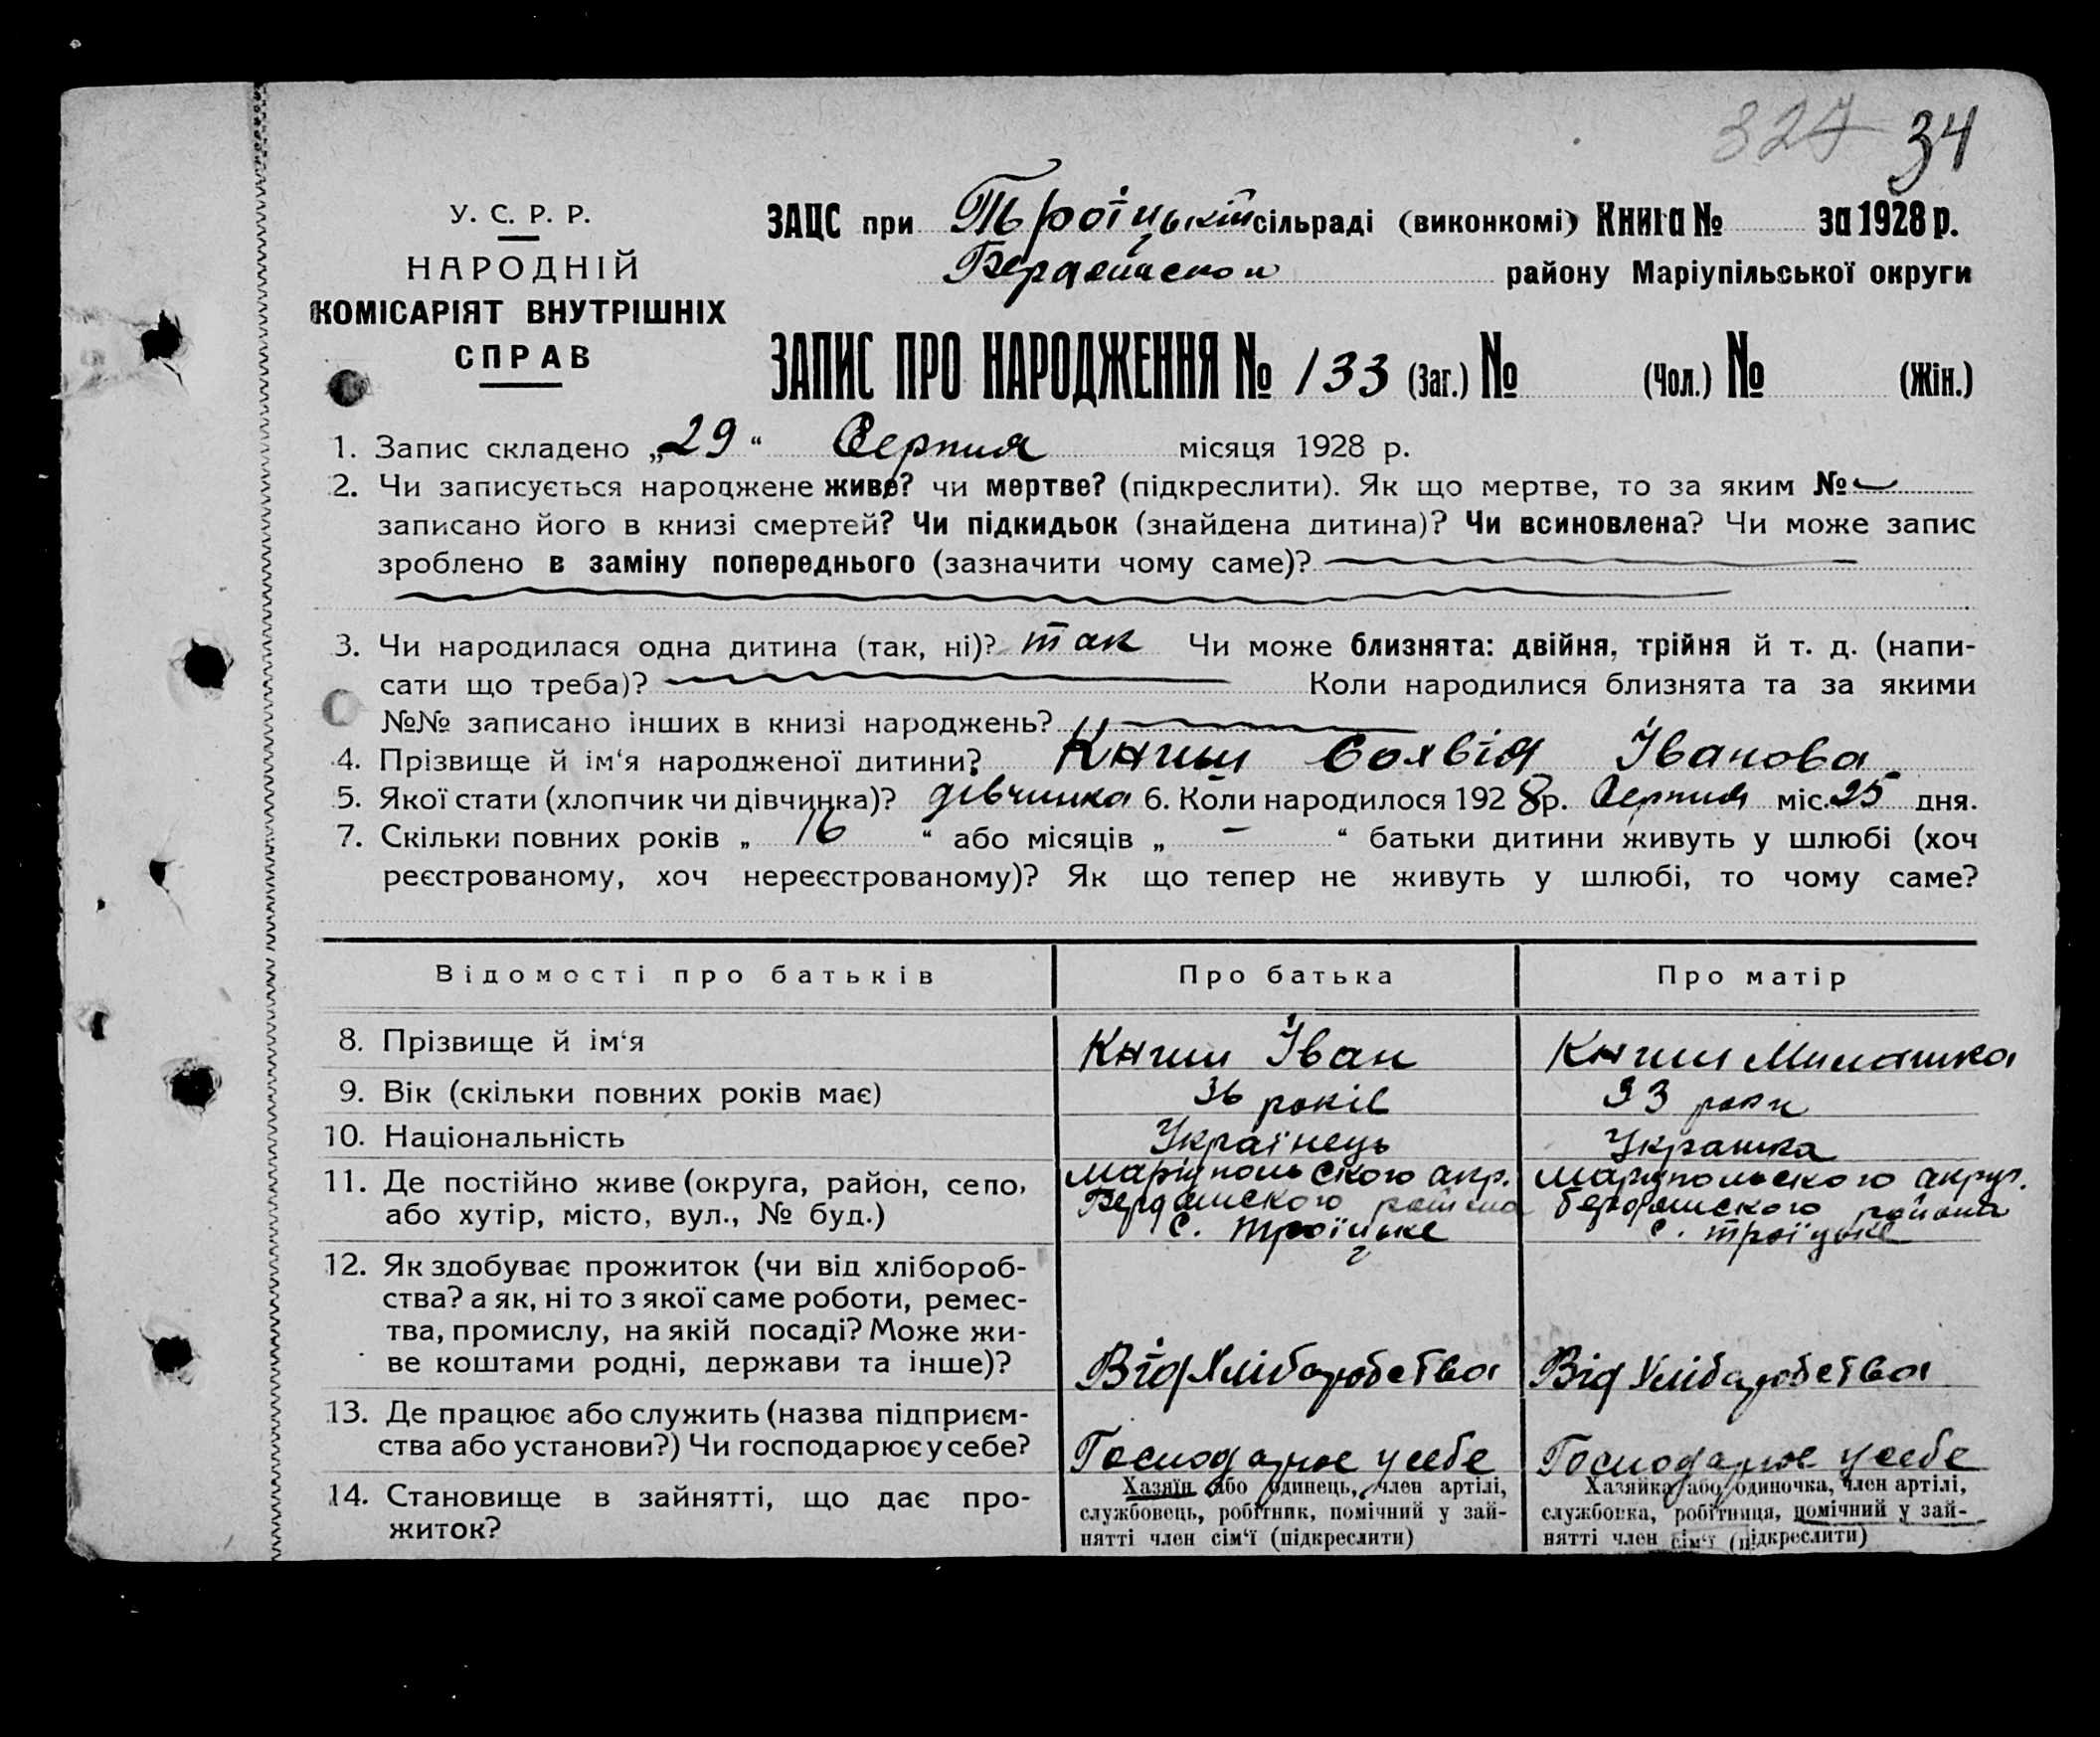 327 34
У. С. Р. Р.
НАРОДНІЙ
КОМІСАРІЯТ ВНУТРІШНІХ
СПРАВ
ЗАЦС при Троїцькій сільраді (виконкомі) Книга № за 1928 р.
району Маріупільської округи
ЗАПИС ПРО НАРОДЖЕННЯ № 133 (Заг.) № (Чол.) № (Жін.)
1. Запис складено „29“ Серпня місяця 1928 р.
2. Чи записується народжене живе? чи мертве? (підкреслити). Як що мертве, то за яким №
записано його в книзі смертей? Чи підкидьок (знайдена дитина)? Чи всиновлена? Чи може запис
зроблено в заміну попереднього (зазначити чому саме)?
3. Чи народилася одна дитина (так, ні)? так Чи може близнята: двійня, трійня й т. д. (напи-
сати що треба)? Коли народилися близнята та за якими
№№ записано інших в книзі народжень?
4. Прізвище й ім‘я народженої дитини? Книш Іванова
5. Якої стати (хлопчик чи дівчинка)? дівчинка 6. Коли народилось 1928 р. Серпня міс. 25 дня.
7. Скільки повних років „ 16 “ або місяців „ – “ батьки дитини живуть у шлюбі (хоч
реєстрованому, хоч нереєстрованому)? Як що тепер не живуть у шлюбі, то чому саме?
Відомості про батьків Про батька Про матір
8. Прізвище й ім‘я Книш Іван Книш
9. Вік (скільки повних років має) 36 років 33 роки
10. Національність Українець Українка
11. Де постійно живе (округа, район, село, Маріупольского окр. Маріупольского округ.
або хутір, місто, вул., № буд.) Бердянского района бердянского района
с. Троїцьке с. троїцьке
12. Як здобуває прожиток (чи від хлібороб-
ства? а як, ні то з якої саме роботи, ремес-
тва, промислу, на якій посаді? Може жи-
ве коштами родні, держави та інше)? Від Хліборобства Від Хліборобства
13. Де працює або служить (назва підприєм-
ства або установи?) Чи господарює у себе? Господарює у себе Господарює у себе
14. Становище в зайнятті, що дає про-
житок?
Хазяїн або одинець, член артілі,
службовець, робітник, помічний у зай-
нятті член сім‘ї (підкреслити)
Хазяйка або одиночка, член артілі,
службовка, робітниця, помічний у зай-
нятті член сім‘ї (підкреслити)